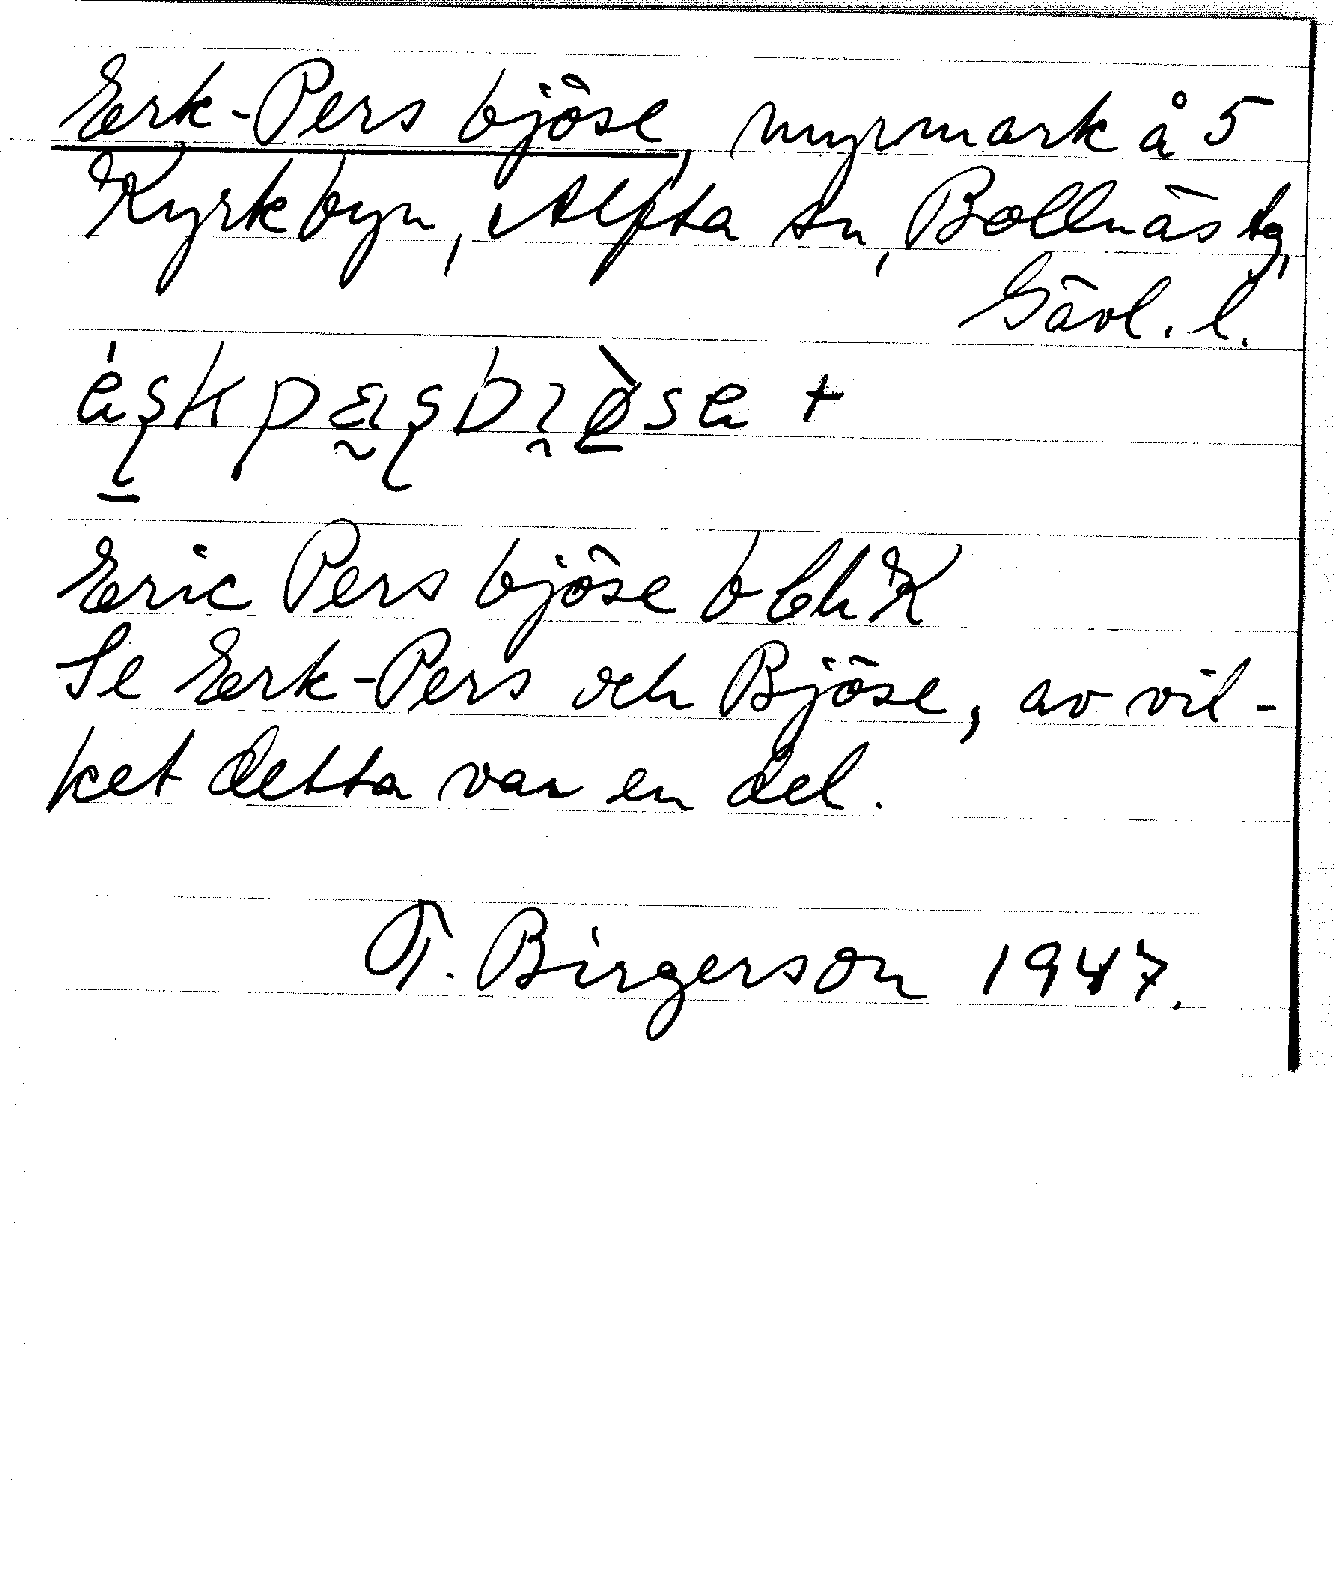 Erk-Pers bjöse, myrmark å 5
Kyrkbyn, Alfta sn, Bollnäs tg,
Gävl. l.
Eric Pers bjöse b Chk
Se Erk-Pers och Bjöse, av vil-
ket detta var en del.
T. Birgerson 1947.